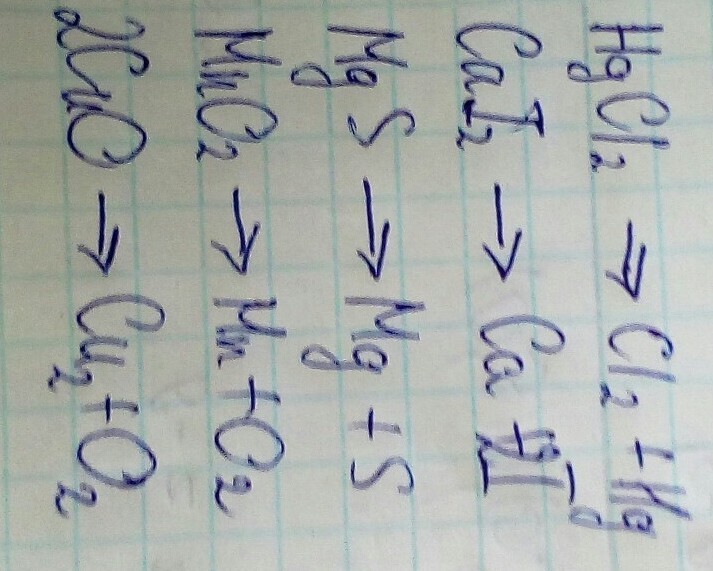 HgCl₂ → Cl₂ + Hg
CaI₂ → Ca + I
MgS → Mg + S
MnO₂ → Mn + O₂
2CuO → Cu₂ + O₂